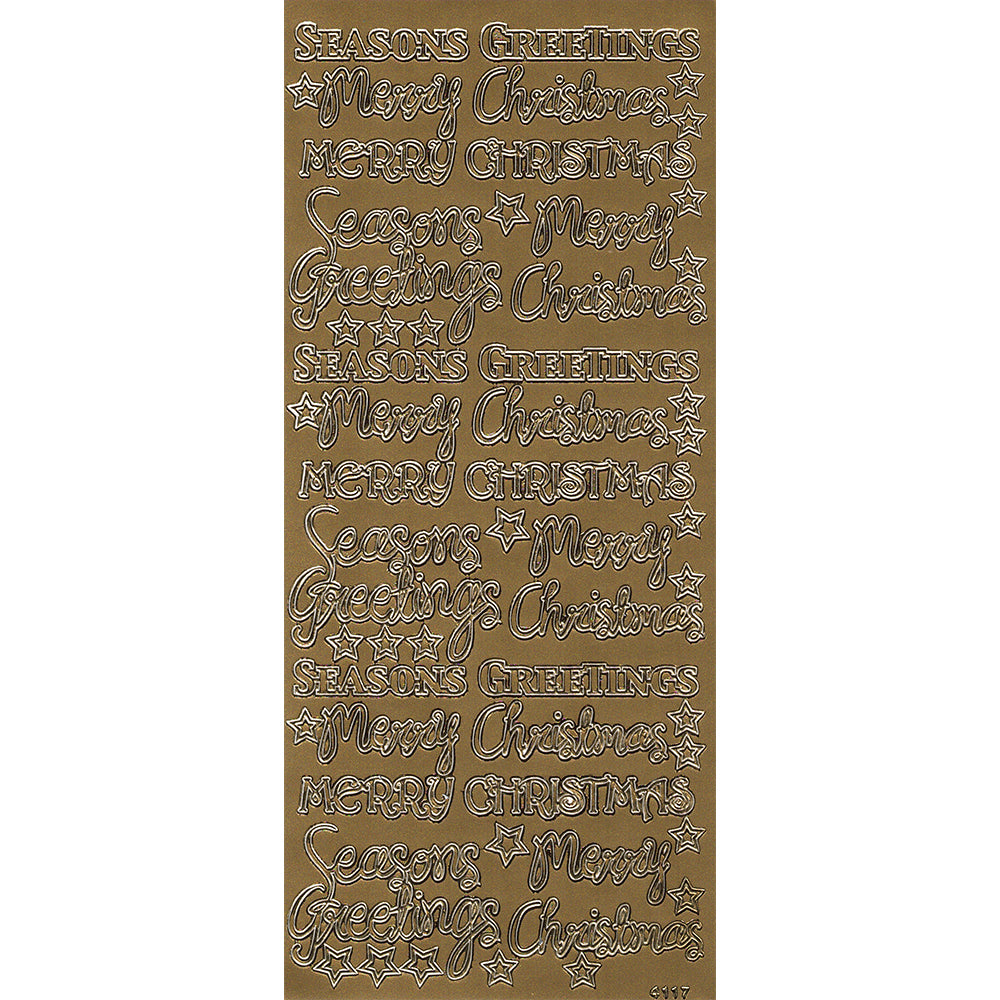 SEASONS GREETINGS
Merry Christmas
MERRY CHRISTMAS
Seasons Merry
Greetings Christmas
SEASONS GREETINGS
Merry Christmas
MERRY CHRISTMAS
Seasons Merry
Greetings Christmas
SEASONS GREETINGS
Merry Christmas
MERRY CHRISTMAS
Seasons Merry
Greetings Christmas
4117